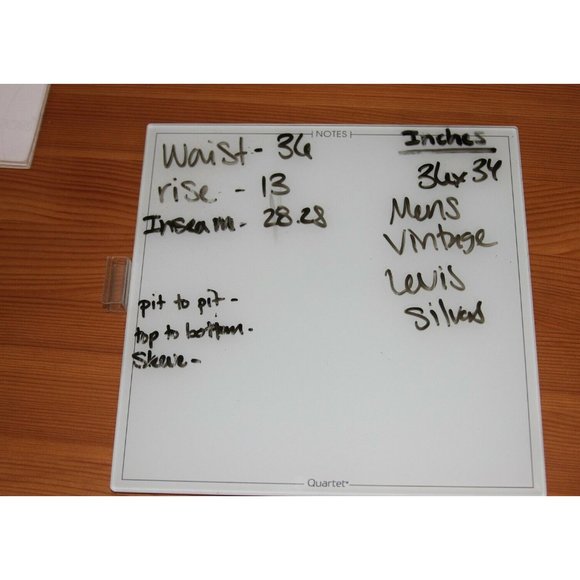 NOTES
Waist - 36
rise - 13
Inseam - 28.28
pit to pit -
top to bottom -
Sleeve -
Inches
36x34
Mens
Vintage
Levis
Silvers
Quartet